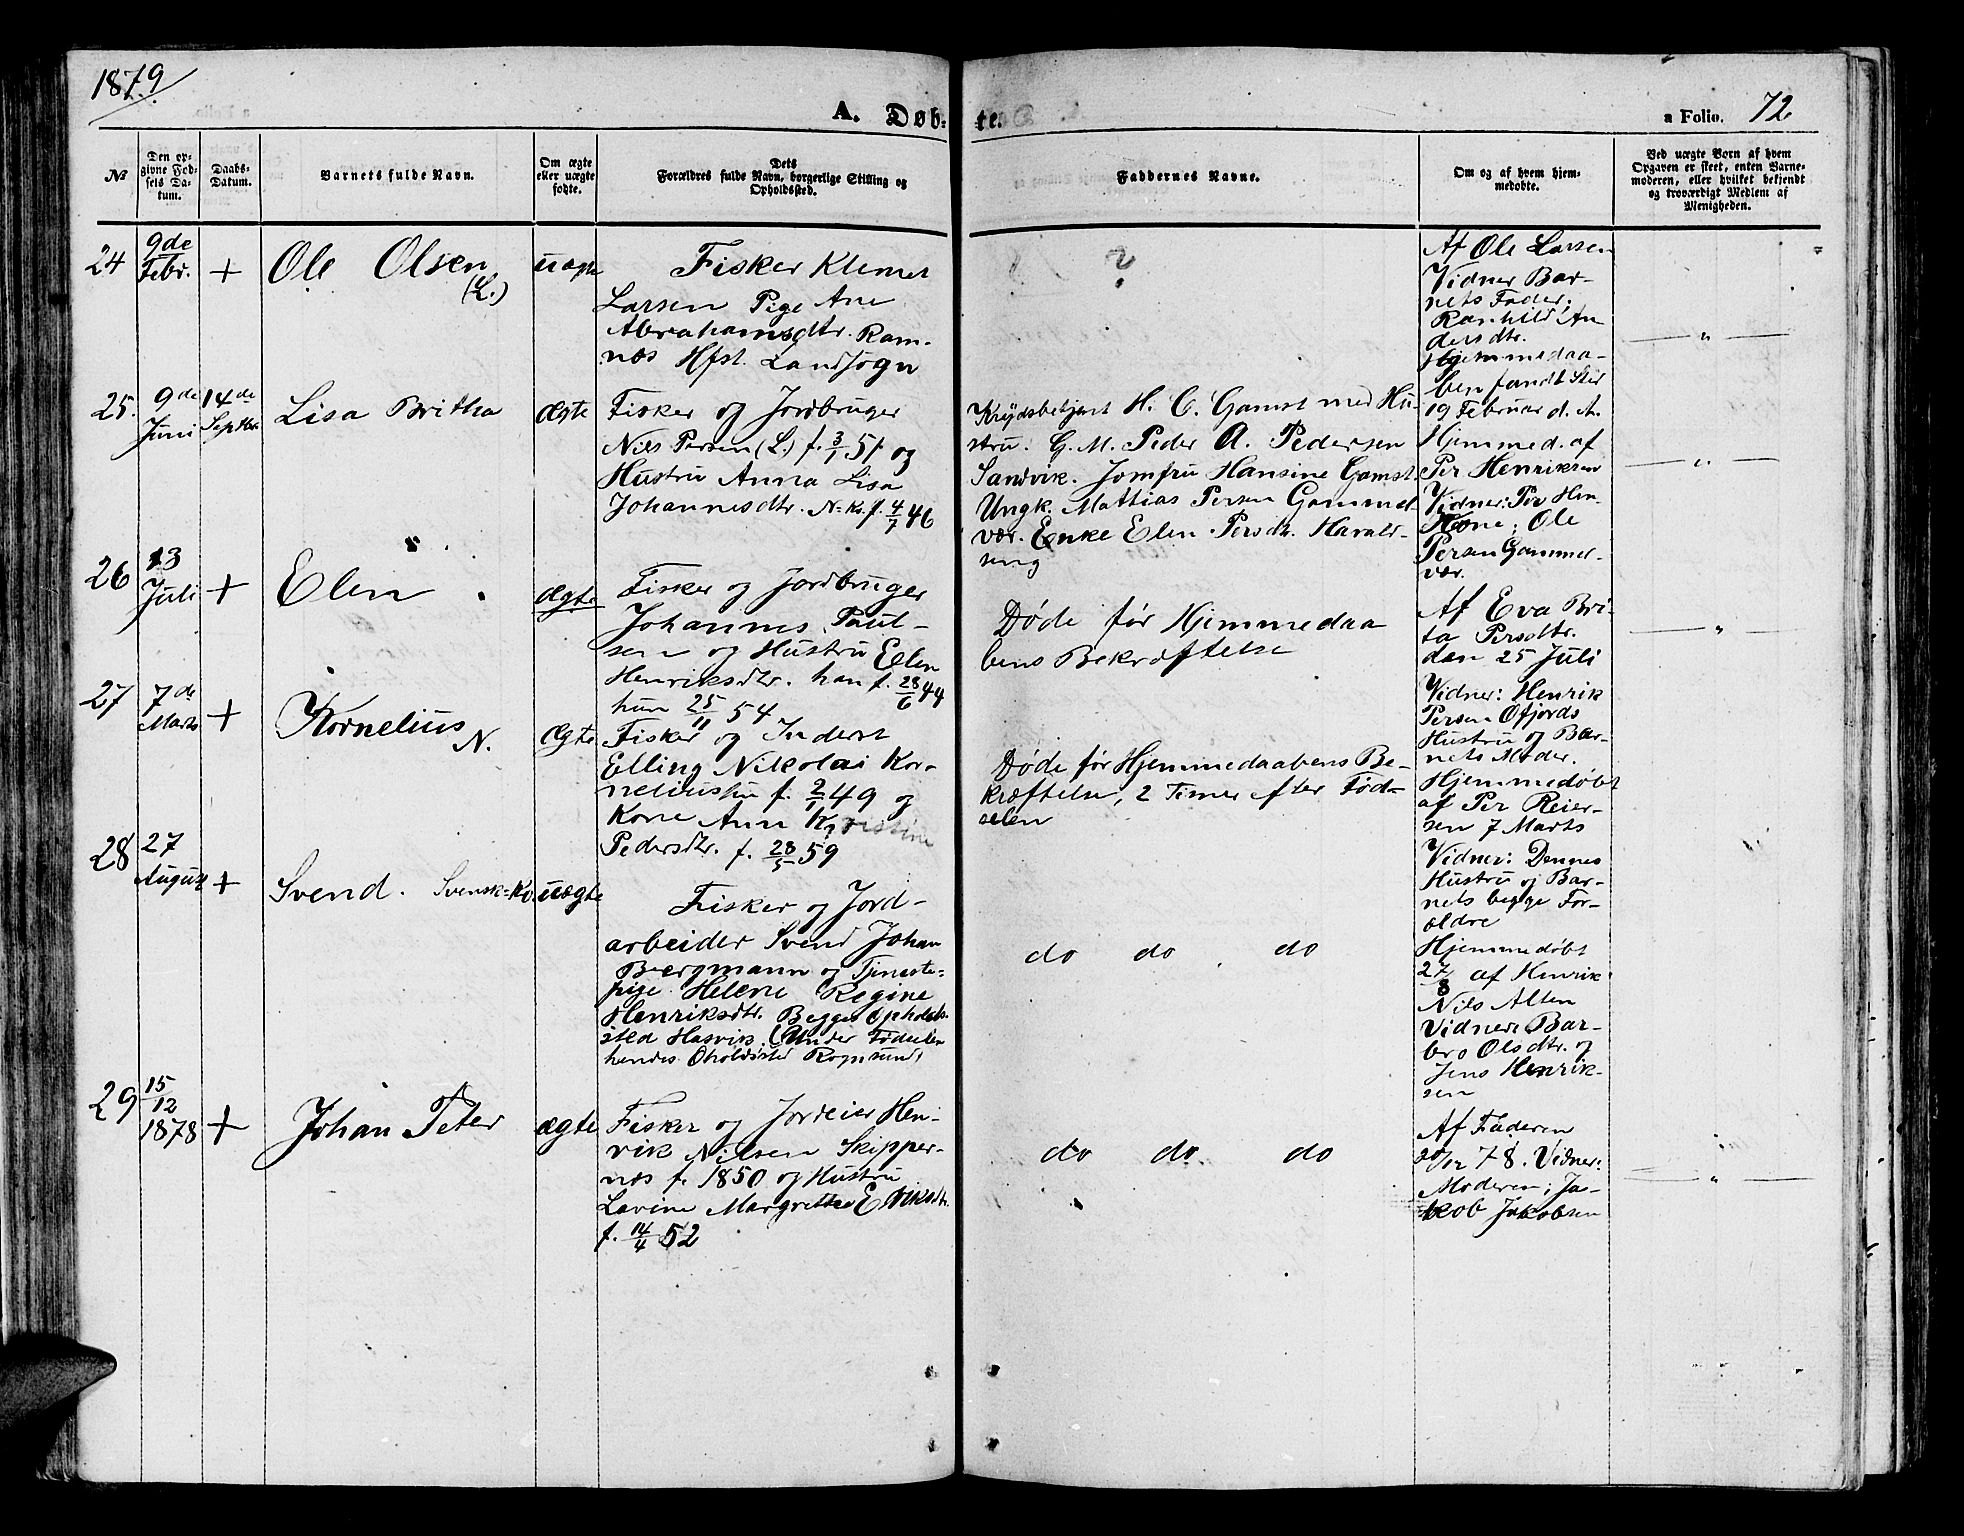 1879
A. Døb-
te.
a Folio. 72
№
Den op-
givne Fød-
sels Da-
tum.
Daabs-
Datum.
Barnets fulde Navn.
Om ægte
eller uægte
fødte.
Dets
Forældres fulde Navn, borgerlige Stilling og
Opholdssted.
Faddernes Navne.
Om og af hvem hjem-
medøbte.
Ved uægte Børn af hvem
Opgaven er skeet, enten Barne-
moderen, eller hvilket bekjendt
og troværdigt Medlem af
Menigheden.
24
9de
Febr.
+
Ole Olsen
(L.)
uægte
Fisker Klemet
Larsen Pige Ane
Abrahamsdtr. Ram-
næs Hfst. Landsogn
?
Af Ole Larsen
Vidner Bar-
nets Fader;
Ranhild An
dersdtr.
Hjemmedaa-
ben fandt Sted
19 Februar d. A.
— " —
25.
9de
Juni
14de
Septbr.
Lisa Britha
Ægte
Fisker og Jordbruger
Nils Persen (L.) f. 3/1 51 og
Hustru Anna Lisa
Johannesdtr. N.-K. f. 4/7 46
Krydsbetjent H. C. Gamst med Hu-
stru. G. M. Peder A. Pedersen
Sandvik. Jomfru Hansine Gamst.
Ungk. Mattias Persen Gammel-
vær. Enke Elen Persdtr. Harald-
seng
Hjemmed. af
Per Henriksen
Vidner: Per Hen-
Kone; Ole
Persen Gammel-
vær.
— " —
26
13
Juli
+
Elen
Ægte
Fisker og Jordbruger
Johannes Paul-
sen og Hustru Ellen
Henriksdtr. han f. 28/6 44
hun 25/11 54
Døde før Hjemmedaa
bens Bekræftelse
Af Eva Bri-
ta Persdtr.
den 25 Juli
Vidner: Henrik
Persen Ofjords
Hustru og Bar-
nets Moder.
— " —
27
7de
Marts
+
Kornelius
N.
Ægte
Fisker og Inderst
Elling Nikolai Kor-
neliussen f. 2/11 49 og
Kone Ann Kristine
Pedersdtr. f. 28/5 59
Døde før Hjemmedaabens Be-
kræftelse, 2 Timer efter Fød-
selen
Hjemmedøbt
af Per Reier-
sen 7 Marts
Vidner: Dennes
Hustru og Bar-
nets begge For-
ældre
28
27
August
+
Svend. Svensk-Kv.
uægte
Fisker og Jord-
arbeider Svend Johan
Bergmann og Tjeneste-
pige Helene Regine
Henriksdtr. Begges Opholds-
sted Hasvik. (Under Fødselen
hendes Oholdssted Rognsund)
do do do
Hjemmedøbt
27/8 af Henrik
Nils Alten
Vidner: Bar-
bro Olsdtr. og
Jens Henrik-
sen
29
15/12
1878
+
Johan Peter
ægte
Fisker og Jordeier Hen-
rik Nilsen Skipper-
næs f. 1850 og Hustru
Lavine Margrethe Eriksdtr.
f. 14/4 52
do do do
Af Faderen
20/12 78. Vidner:
Moderen; Ja-
kob Jakobsen
— " —